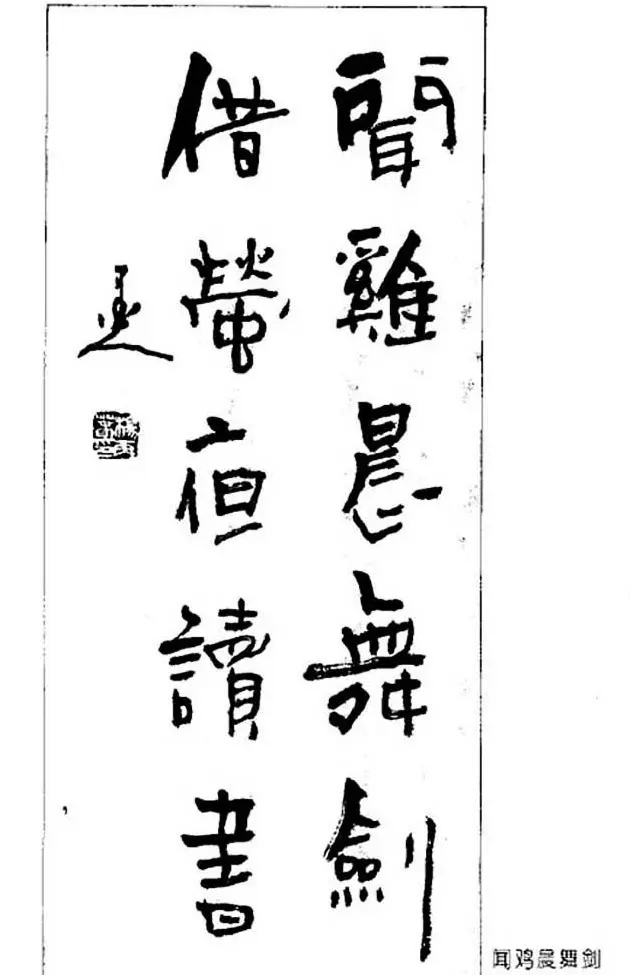 聞雞晨舞劍
借螢夜讀書
闻鸡晨舞剑